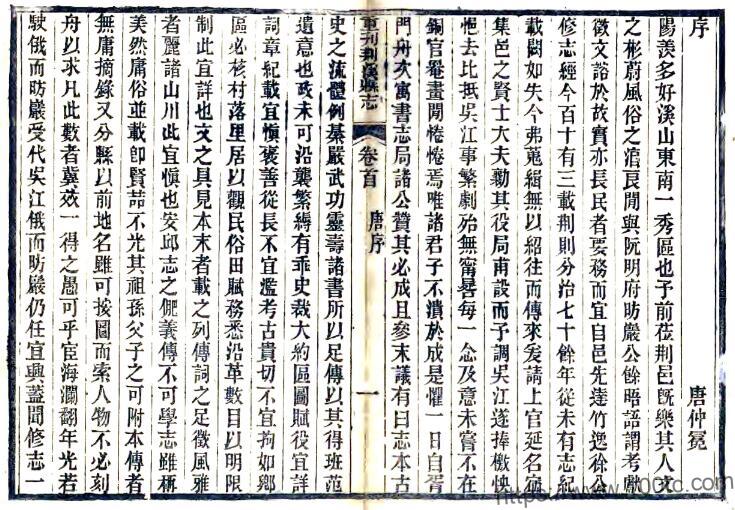 序
唐仲冕
陽羨多好溪山東南一秀區也予前莅荆邑旣樂其人文
之彬蔚風俗之湻良閒與阮明府昉巖公餘晤語謂考獻
徵文諮於故實亦長民者要務而宜自邑先達竹逸徐公
修志經今百十有三載荆則分治七十餘年從未有志紀
載闕如失今弗蒐緝無以紹往而傳來爰請上官延名宿
集邑之賢士大夫勷其役局甫設而予調吳江遂捧檄怏
怏去比抵吳江事繁劇殆無甯晷每一念及意未嘗不在
銅官罨畫閒惓惓焉唯諸君子不潰於成是懼一日自胥
門舟次寓書志局諸公贊其必成且參末議有曰志本古
重刊荆溪縣志
卷首
唐序
一
史之流體例綦嚴武功靈壽諸書所以足傳以其得班范
遺意也政未可沿襲繁縟有乖史裁大約區圖賦役宜詳
詞章紀載宜愼褒善從長不宜濫考古貴切不宜拘如鄉
區必核村落里居以觀民俗田賦務悉沿革數目以明限
制此宜詳也文之具見本末者載之列傳詞之足徵風雅
者麗諸山川此宜愼也安邱志之俪義傳不可學志雖稱
美然庸俗並載卽賢喆不光其祖孫父子之可附本傳者
無庸摘錄又分縣以前地名雖可按圖而索人物不必刻
舟以求凡此數者冀效一得之愚可乎宦海瀾翻年光若
駛俄而昉巖受代吳江俄而昉巖仍任宜興蓋聞修志一